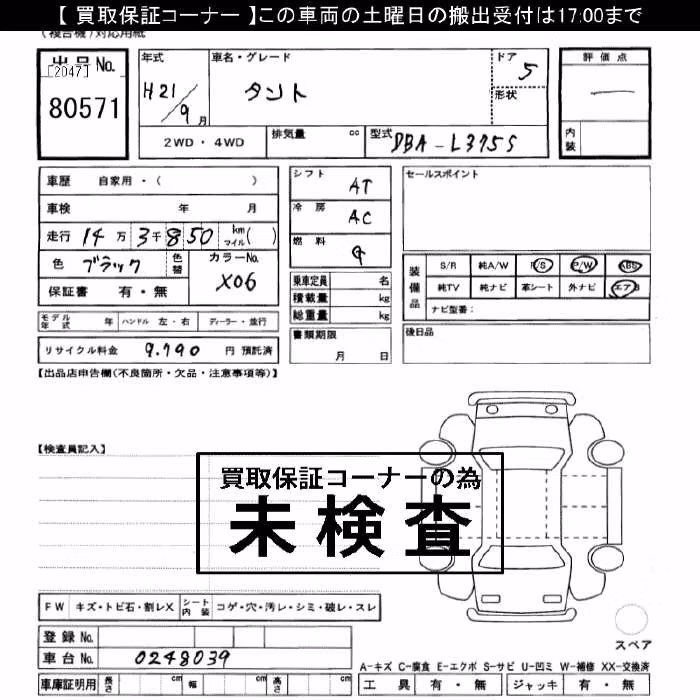 【 買取保証コーナー 】この車両の土曜日の搬出受付は17:00まで
(複合機)対応用紙
出品No.
[2047]
80571
年式
H21/9月
車名・グレード
タント
ドア
5
形状
評価点
内装
2WD・4WD
排気量 cc
型式 DBA-L375S
車歴 自家用・( )
車検 年 月
走行 14万3千850 km マイル( )
色 ブラック 色替
カラーNo.
X06
保証書 有・無
モデル年式 年 ハンドル 左・右 ディーラー・並行
リサイクル料金 9.790 円 預託済
シフト AT
冷房 AC
燃料 G
乗車定員 名
積載量 kg
総重量 kg
書類期限
月 日
セールスポイント
装備品
S/R 純A/W P/S P/W ABS
純TV 純ナビ 革シート 外ナビ エアB
ナビ型番:
後日品
【出品店申告欄(不良箇所・欠品・注意事項等)】
【検査員記入】
買取保証コーナーの為
未検査
FW キズ・トビ石・割レX シート内装 コゲ・穴・汚レ・シミ・破レ・スレ
登録No.
車台No. 0248039
車庫証明用 長さ cm 幅 cm 高さ cm
スペア
A-キズ C-腐食 E-エクボ S-サビ U-凹ミ W-補修 XX-交換済
工具 有・無 ジャッキ 有・無